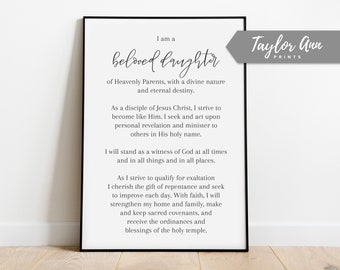 I am a
beloved daughter
of Heavenly Parents, with a divine nature
and eternal destiny.
As a disciple of Jesus Christ, I strive to
become like Him. I seek and act upon
personal revelation and minister to
others in His holy name.
I will stand as a witness of God at all times
and in all things and in all places.
As I strive to qualify for exaltation
I cherish the gift of repentance and seek
to improve each day. With faith, I will
strengthen my home and family, make
and keep sacred covenants, and
receive the ordinances and
blessings of the holy temple.
Taylor Ann
PRINTS